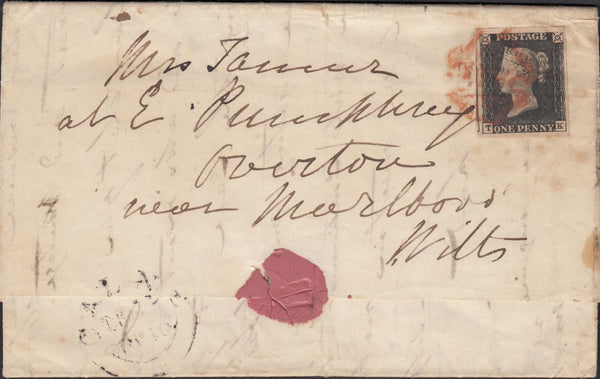 POSTAGE
T ONE PENNY K
Mrs Tanner
at E. Pumphrey
Overton
near Marlboro
Wilts